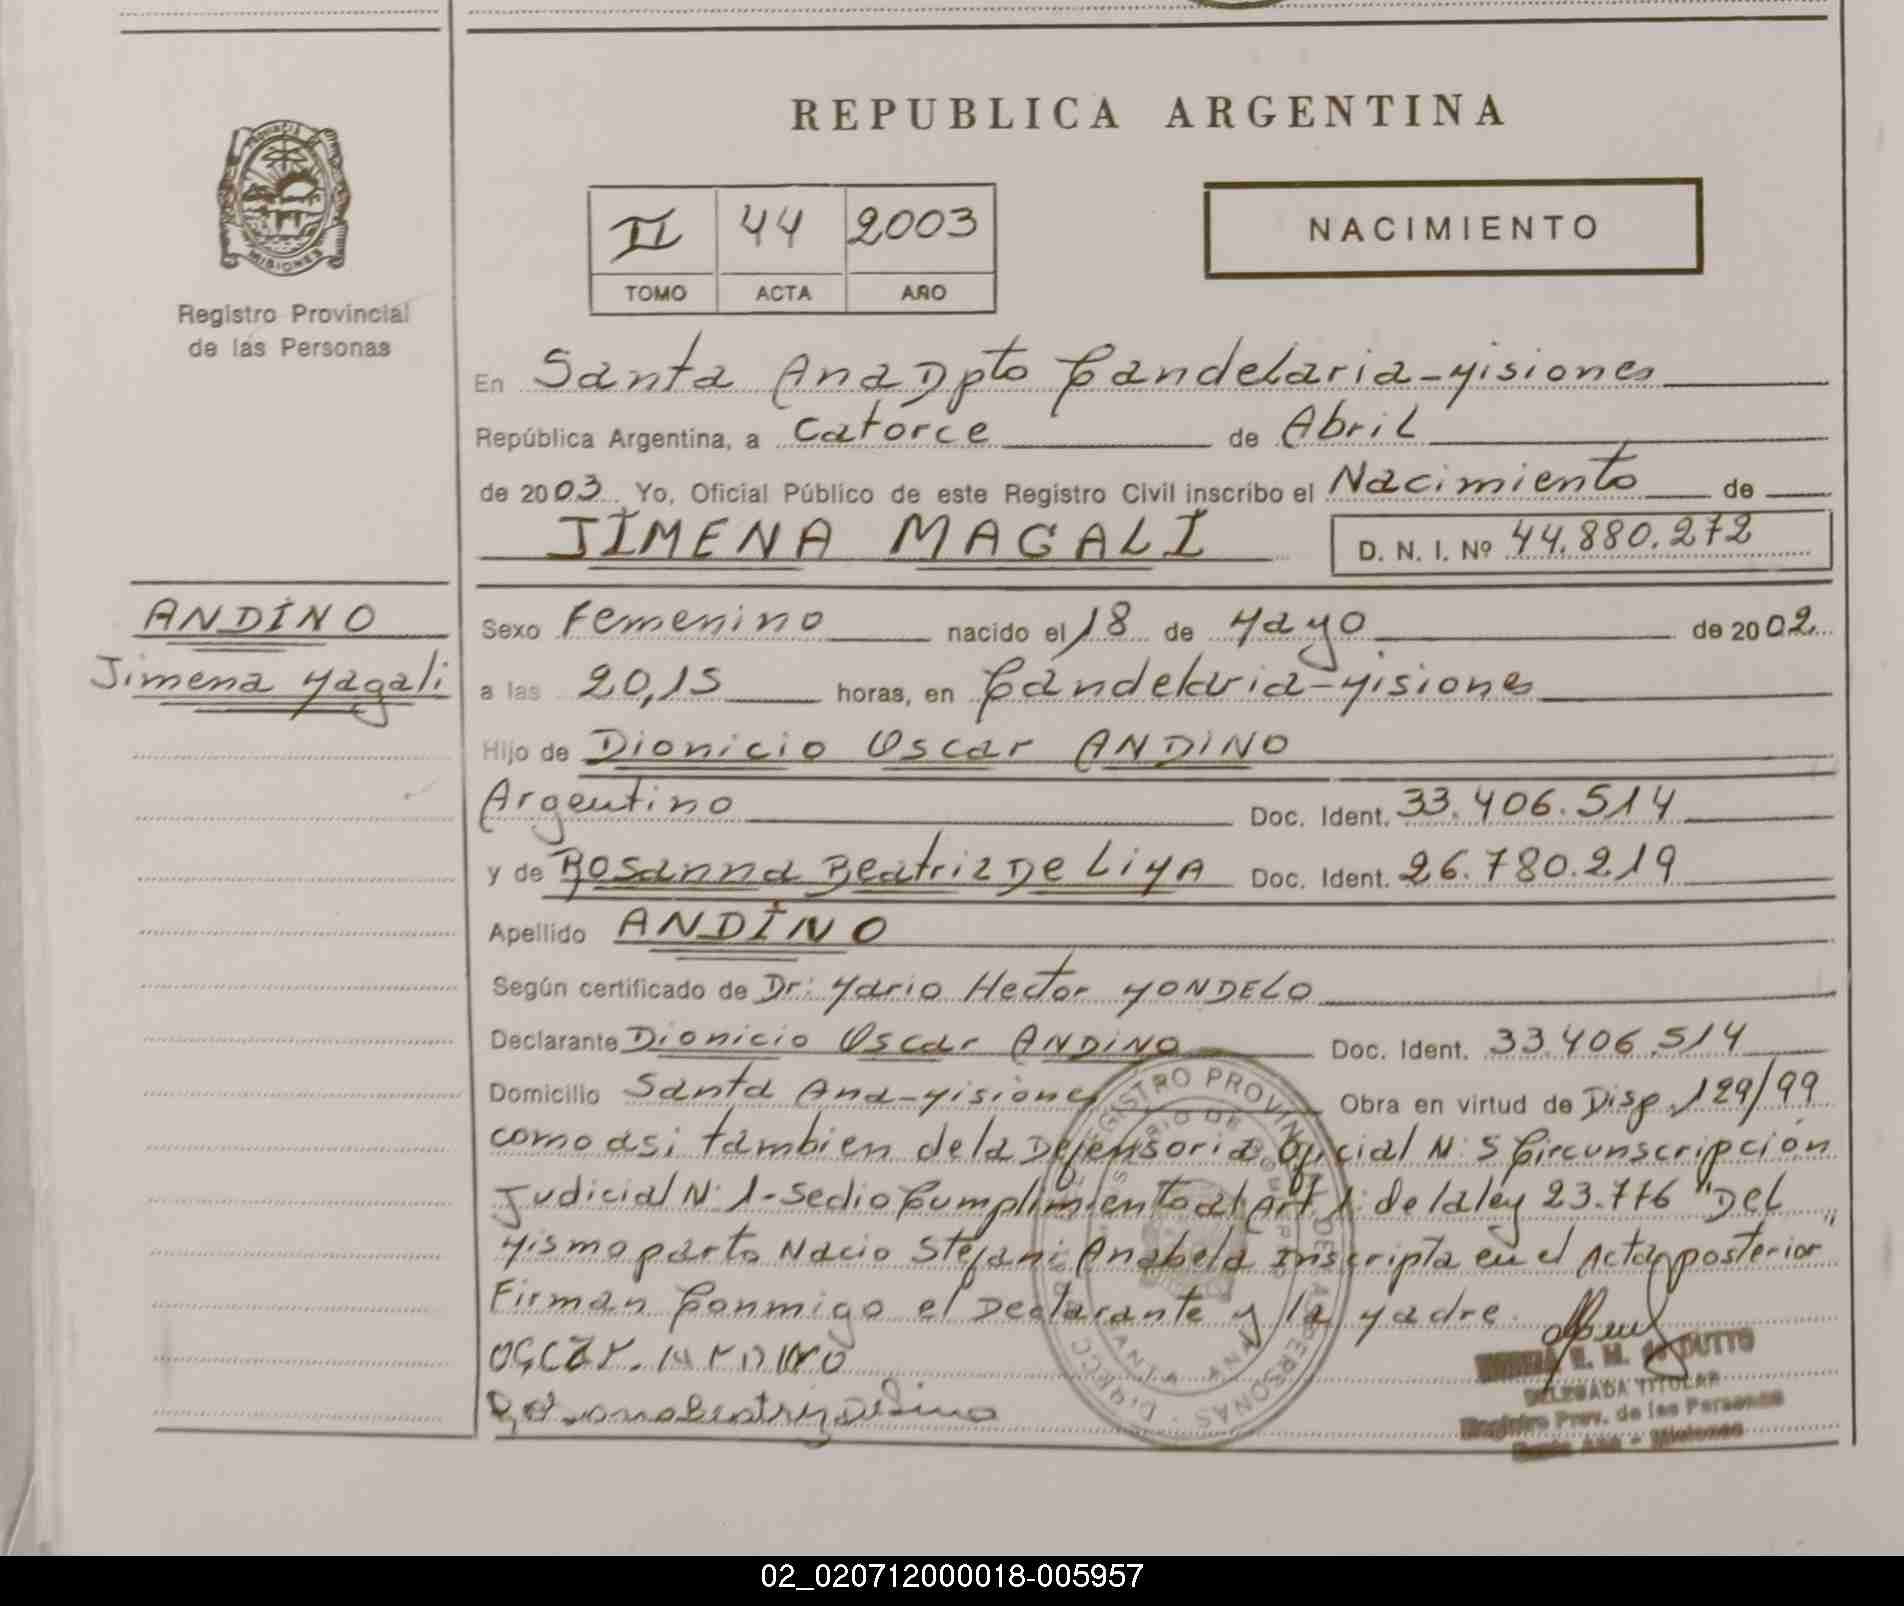 REPUBLICA ARGENTINA
PROVINCIA
MISIONES
Registro Provincial
de las Personas
II 44 2003
TOMO ACTA AÑO
NACIMIENTO
En Santa Ana Dpto Candelaria-Misiones
República Argentina, a Catorce de Abril
de 2003 Yo, Oficial Público de este Registro Civil inscribo el Nacimiento de
JIMENA MAGALI
D. N. I. Nº 44.880.272
ANDINO
Jimena Magali
Sexo Femenino nacido el 18 de Mayo de 2002
a las 20,15 horas, en Candelaria-Misiones
Hijo de Dionicio Oscar ANDINO
Argentino Doc. Ident. 33.406.514
y de Rosanna Beatriz De LiMA Doc. Ident. 26.780.219
Apellido ANDINO
Según certificado de Dr: Mario Hector MONDELO
Declarante Dionicio Oscar ANDINO Doc. Ident. 33.406.514
Domicilio Santa Ana-Misiones Obra en virtud de Disp. 129/99
como asi tambien de la Defensoria Oficial N: 5 Circunscripción
Judicial N: 1- Sedio Cumplimiento al Art 1: de la ley 23.776 "Del
Mismo parto Nacio Stefani Anabela Inscripta en el Acta posterior"
Firman Conmigo el Declarante y la Madre.
OSCAR ANDINO
DUTTO
DELEGADA TITULAR
Registro Prov. de las Personas
Santa Ana - Misiones
REGISTRO PROVINCIAL DE LAS PERSONAS
SANTA ANA
02_020712000018-005957